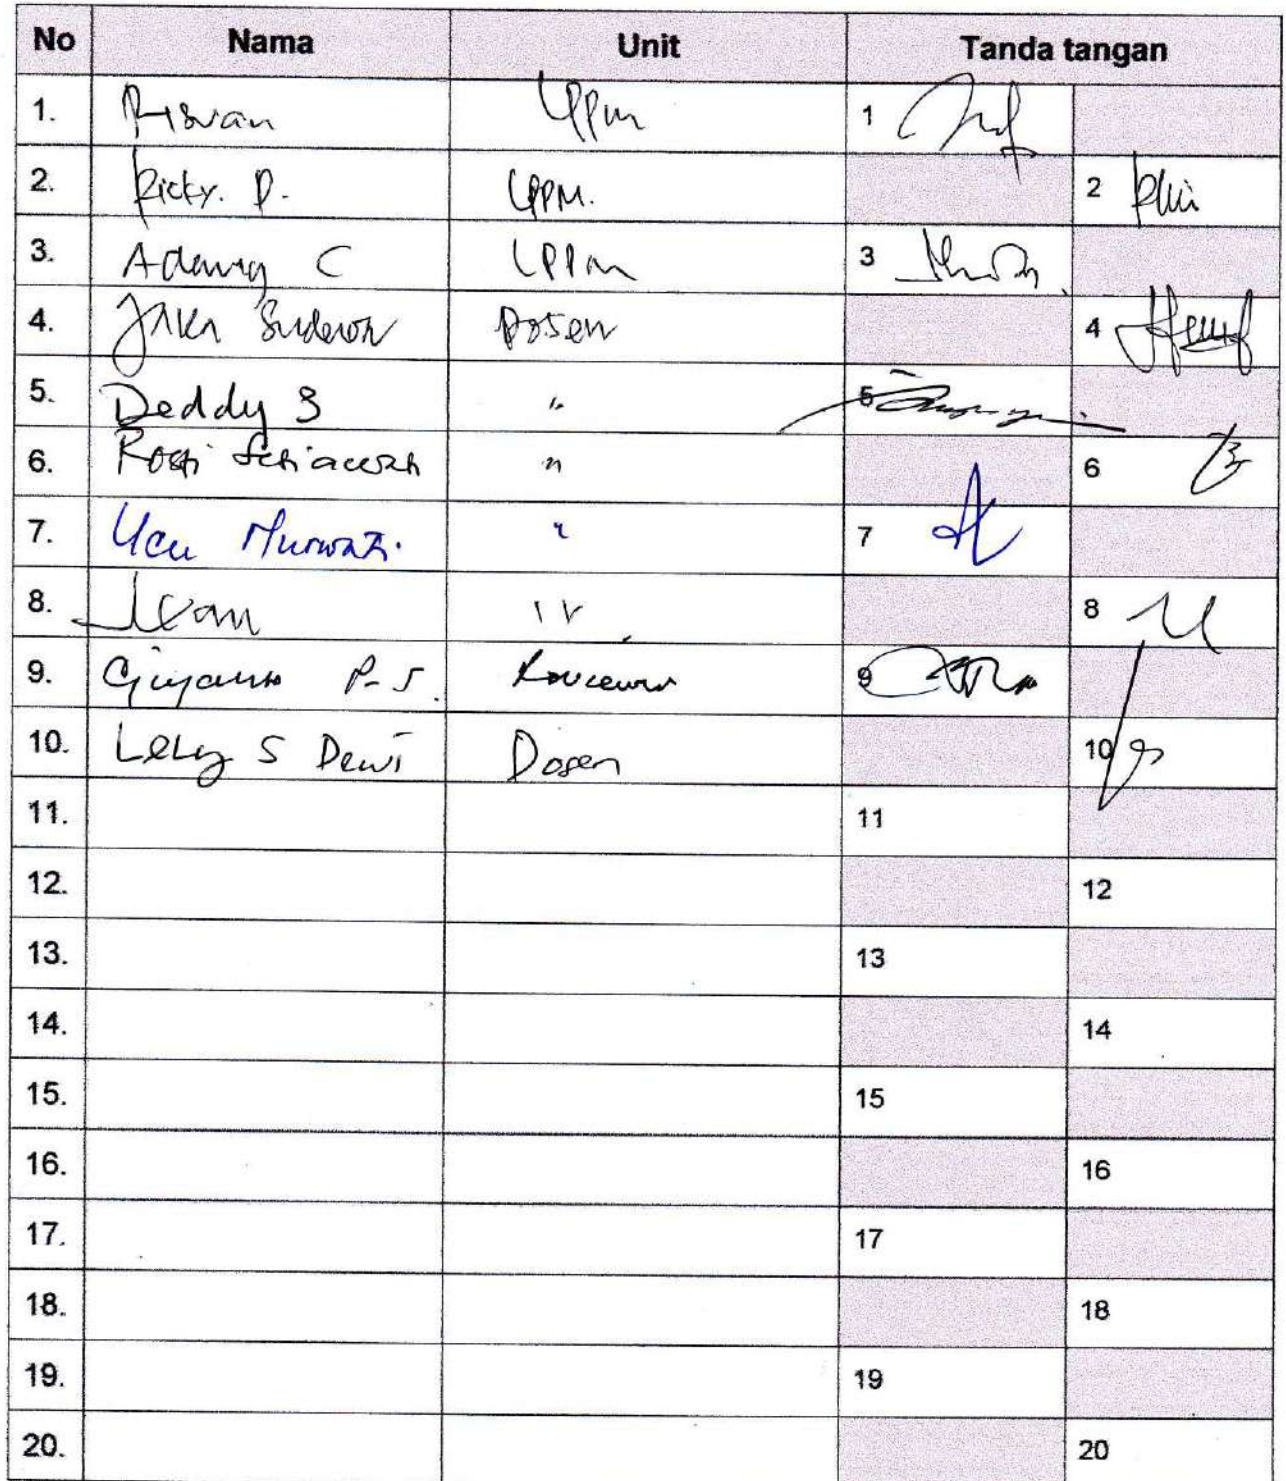 No Nama Unit Tanda tangan
1. Risvan LPPM 1
2. Ricky. D. LPPM. 2
3. Adang C LPPM 3
4. Jaka Dosen 4
5. Deddy S " 5
6. Rosti Setiawan " 6
7. Ucu " 7
8. Ivan " 8
9. P-S. 9
10. Lely S Dewi Dosen 10
11. 11
12. 12
13. 13
14. 14
15. 15
16. 16
17. 17
18. 18
19. 19
20. 20